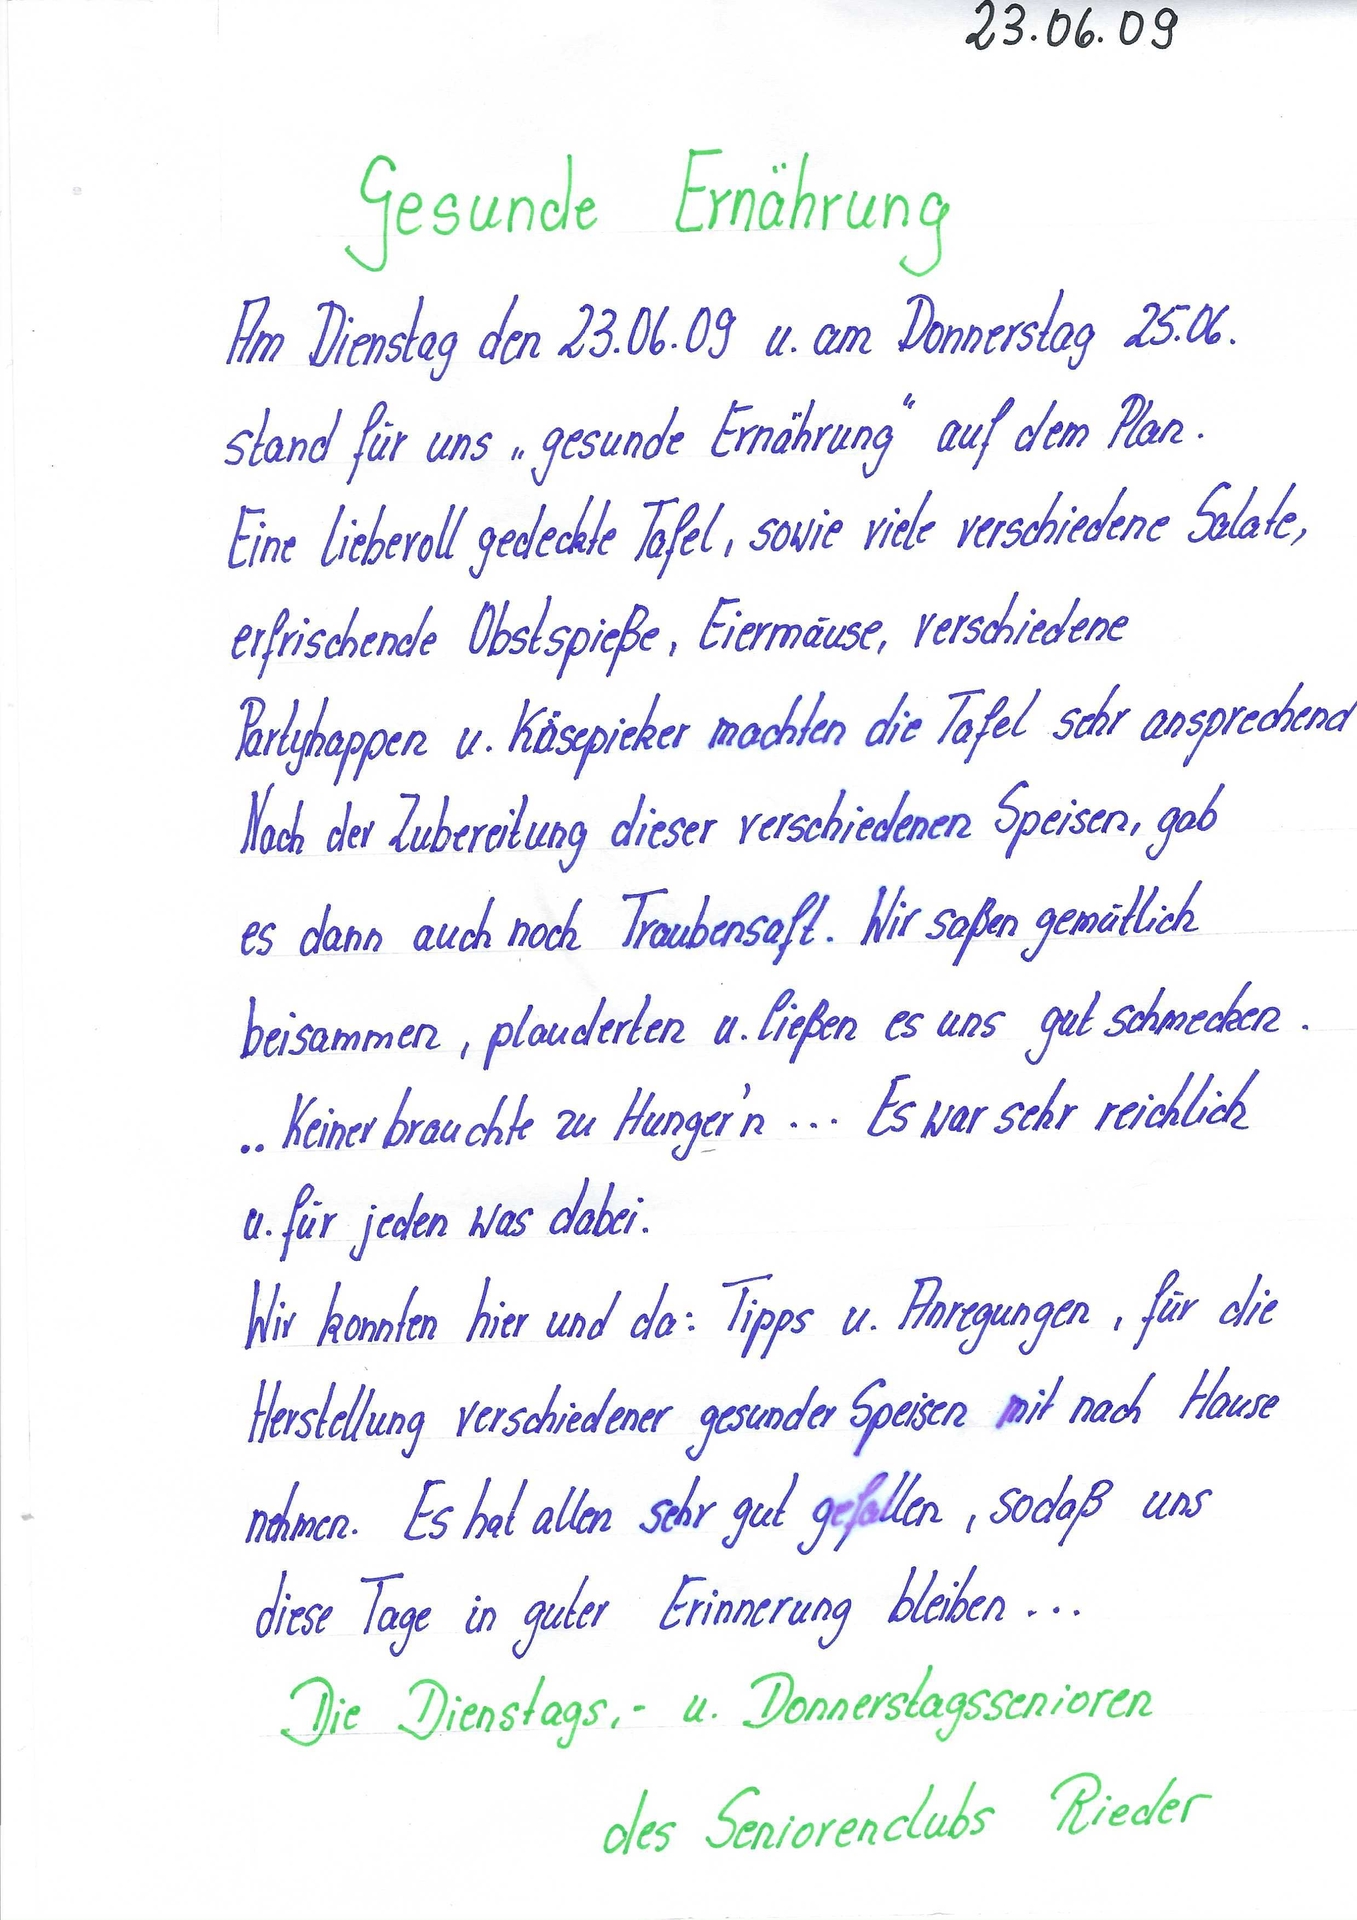 23.06.09
Gesunde Ernährung
Am Dienstag den 23.06.09 u. am Donnerstag 25.06.
stand für uns „gesunde Ernährung“ auf dem Plan.
Eine liebevoll gedeckte Tafel, sowie viele verschiedene Salate,
erfrischende Obstspieße, Eiermäuse, verschiedene
Partyhappen u. Käsepieker machten die Tafel sehr ansprechend
Nach der Zubereitung dieser verschiedenen Speisen, gab
es dann auch noch Traubensaft. Wir saßen gemütlich
beisammen, plauderten u. ließen es uns gut schmecken.
.. Keiner brauchte zu Hunger'n ... Es war sehr reichlich
u. für jeden was dabei.
Wir konnten hier und da: Tipps u. Anregungen, für die
Herstellung verschiedener gesunder Speisen mit nach Hause
nehmen. Es hat allen sehr gut gefallen, sodaß uns
diese Tage in guter Erinnerung bleiben ...
Die Dienstags,- u. Donnerstagssenioren
des Seniorenclubs Rieder